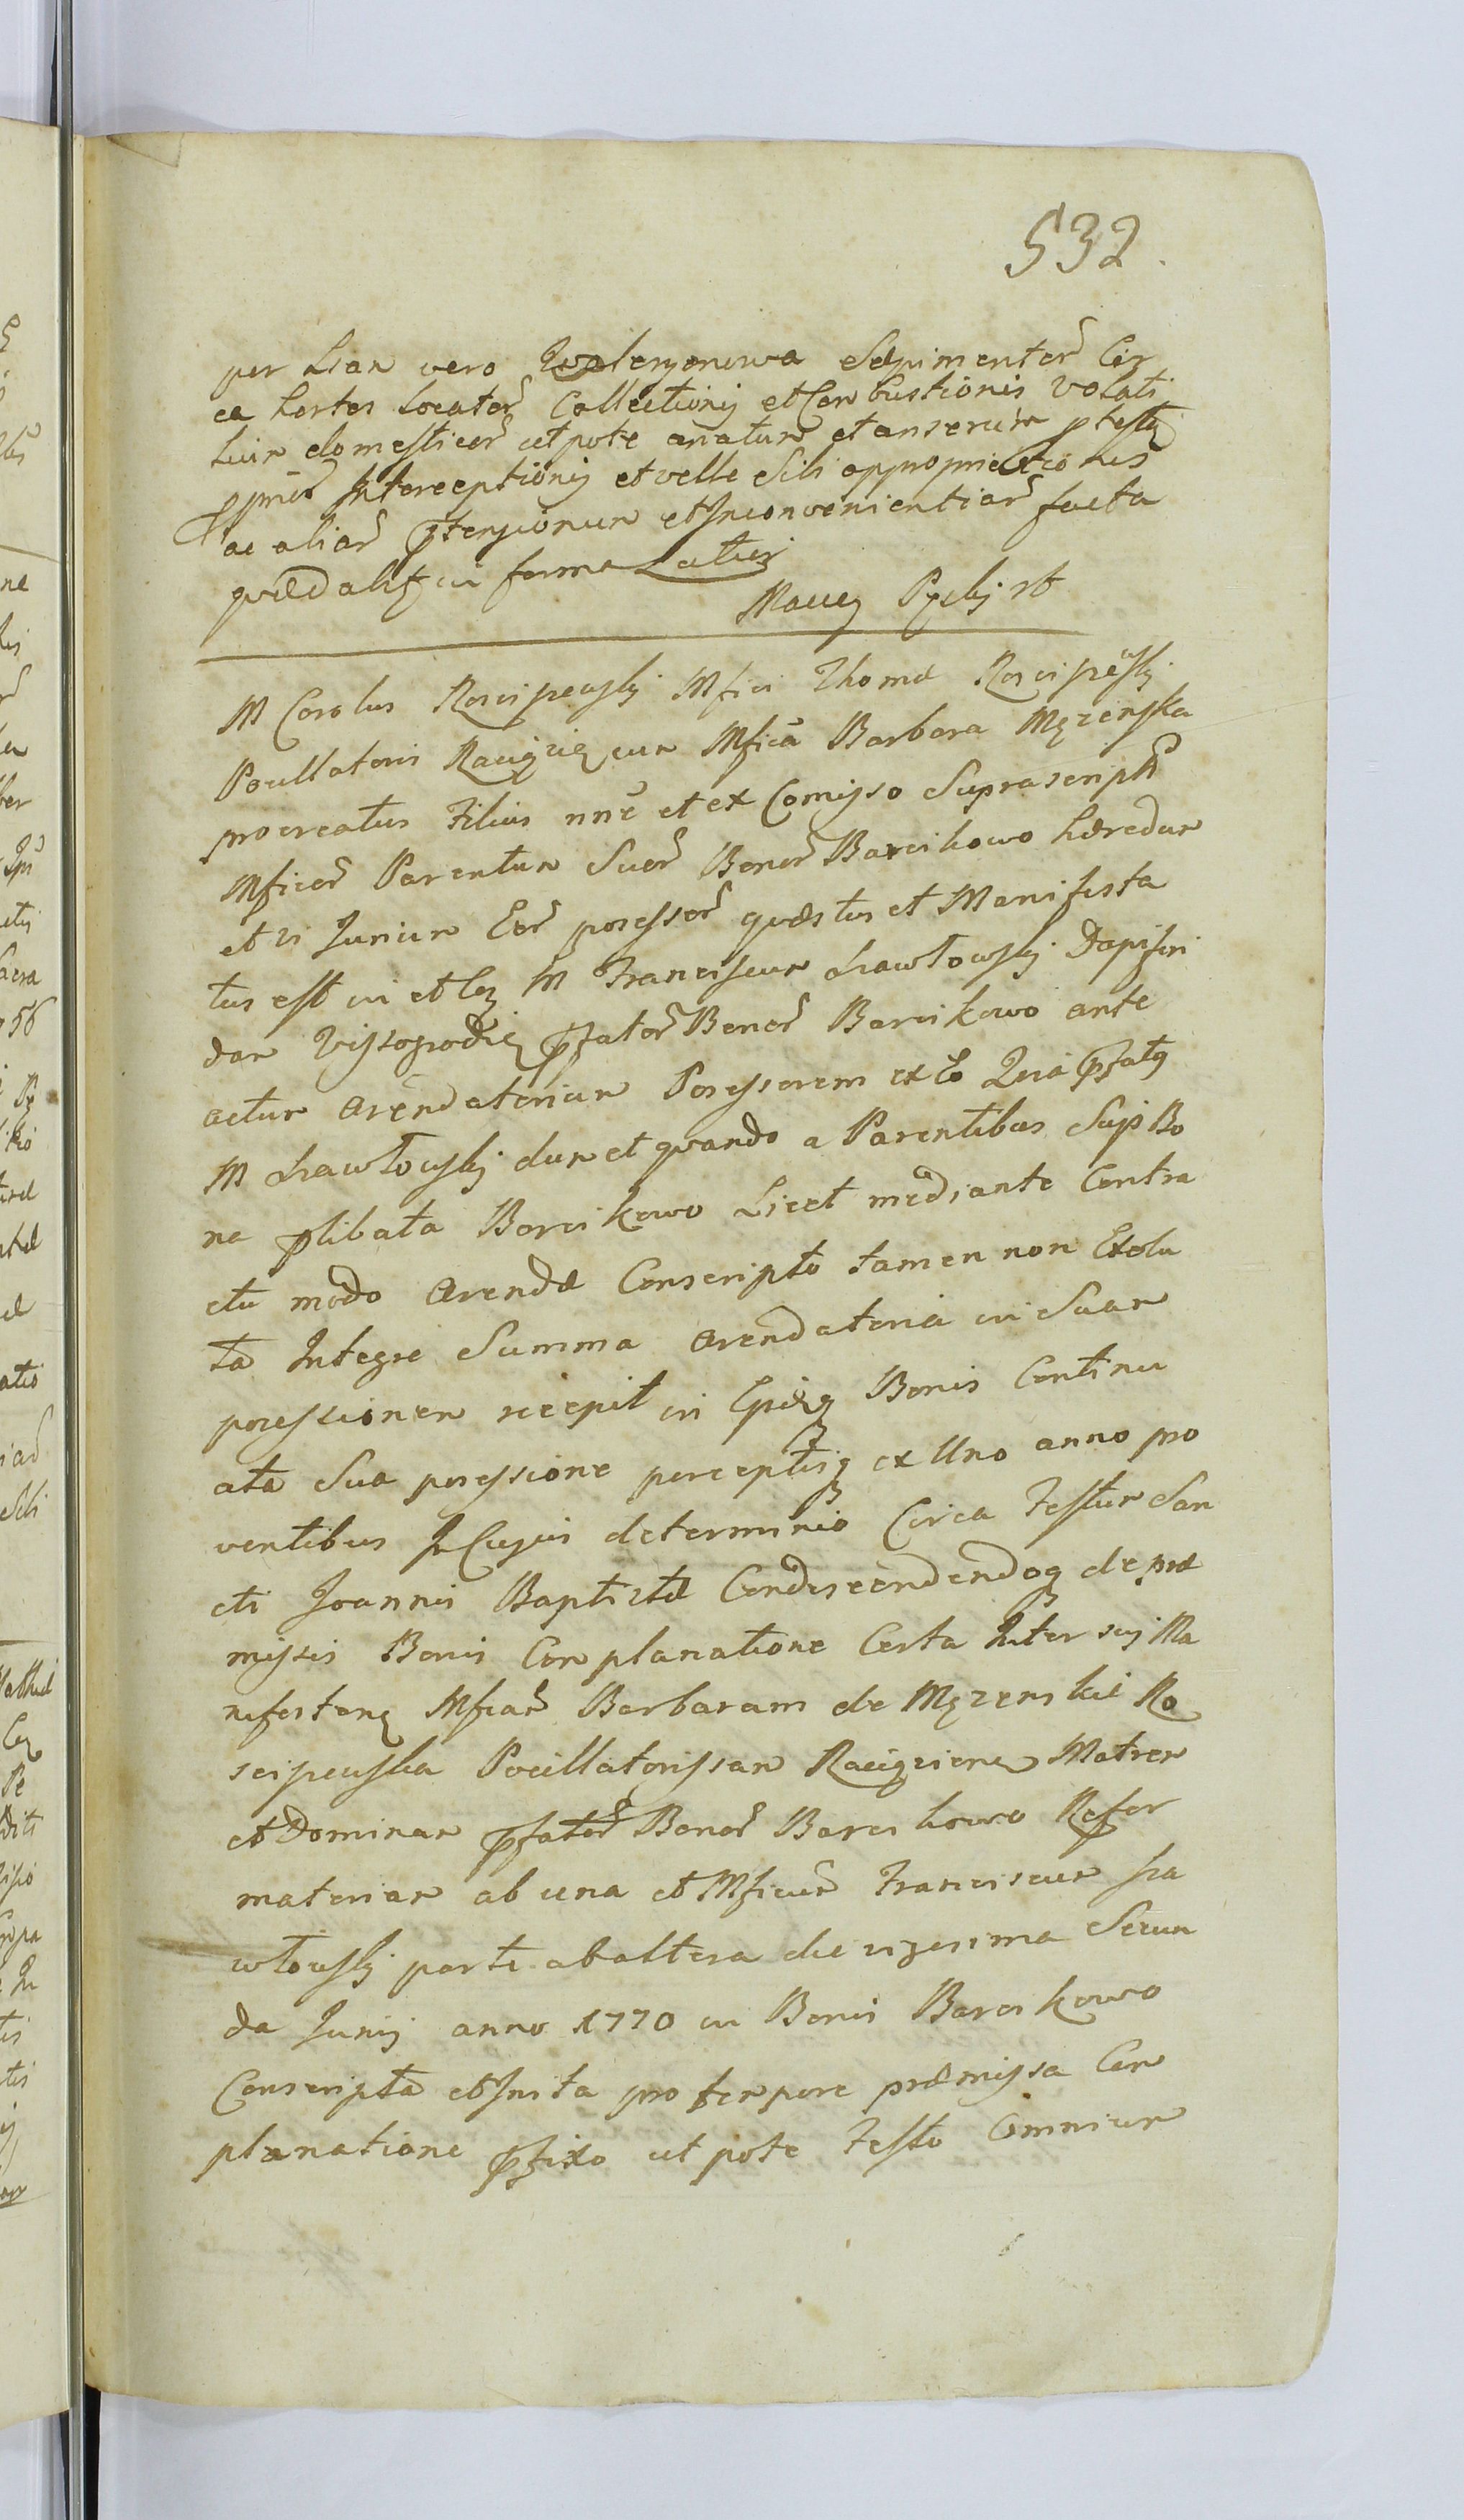 532.
per Lian vero Waleryanowa Sepimentor Cir
ca hortos locator Collectionis et Conbustionis Volati
lium domesticor utpote anatum et anserum
Interceptionis et velle Sibi appropriationis
ac aliar ptensionum et Inconvenientiar facta
quæd alit in forma Latiori
Maciey
M Carolus Kosci­pewskj Mfici Thomæ Koscipewskj
Pocillatoris Raciązię cum Mfica Barbara Męzenska
procreatus Filius nne et ex Comisso Suprascript
Mficor Parentum Suor Bonor Barcikowo hæredum
et vi Jurium Eor possessor quæstus et Manifesta
tus est in et Cq M Franciscum Lrawłowskj Dapiferi
dam Vissogrodię pfator Bonor Barcikowo ante
actum arendatorium Possessorem ex Eo Quia pfatq
M Lrawłowskj dum et quando a Parentibus Suis Bo
na plibata Barcikowo Licet mediante Contra
ctu modo arendæ Conscripto tamen non Exolu
ta Integre Summa arendatoria in Suam
possessionem recepit in Bonis Continu
ata Sua possessione perceptisq ex Uno anno pro
ventibus In Cujus determinio Circa Festum San
cti Joannis Baptistæ Condescendendoq de præ
missis Bonis Conplanatione Certa Inter suj Ma
nifestanę Mficam Barbaram de Męzenskie Ko
scipewska Pocillatorissam Raciązienę Matrem
et Dominam pfator Bonor Barcikowo Refor
materiam ab una et Mficum Franciscum Lra
włowskj parte ab altera die vigesima Secun
da Junij anno 1770 in Bonis Barcikowo
Conscripta et Inita pro tempore præmissa Con
planatione pfixo ut pote Festo Omnium